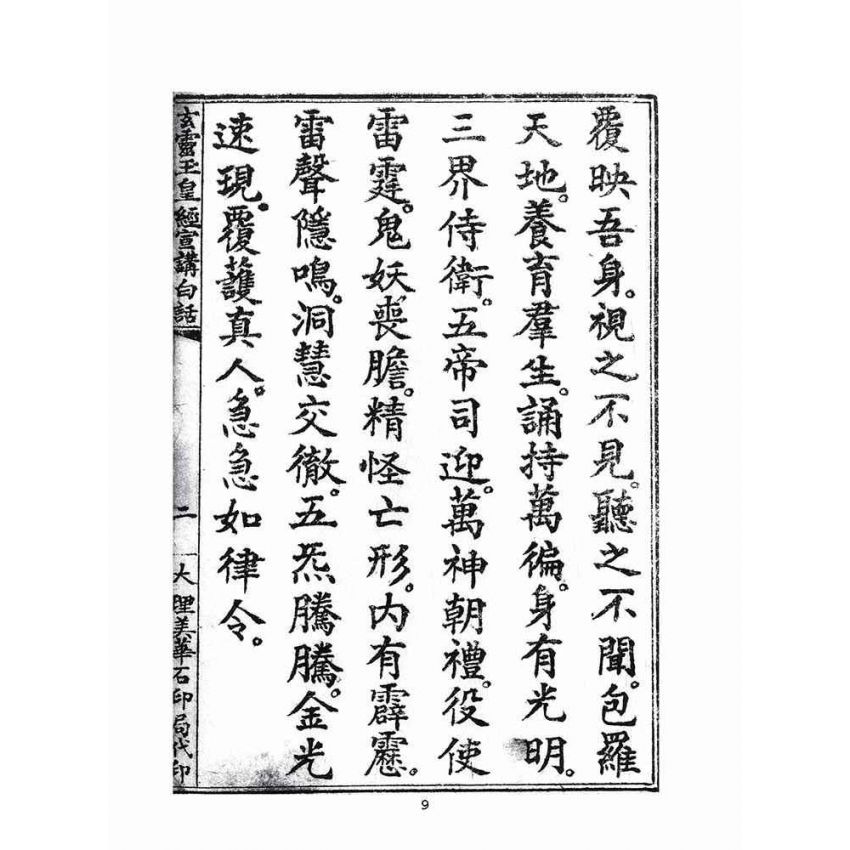 覆映吾身。視之不見。聽之不聞。包羅
天地。養育羣生。誦持萬徧。身有光明。
三界侍衛。五帝司迎。萬神朝禮。役使
雷霆。鬼妖喪膽。精怪亡形。内有霹靂。
雷聲隱鳴。洞慧交徹。五炁騰騰。金光
速現。覆護真人。急急如律令。
玄靈玉皇經宣講白話 二 大理美華石印局代印
9